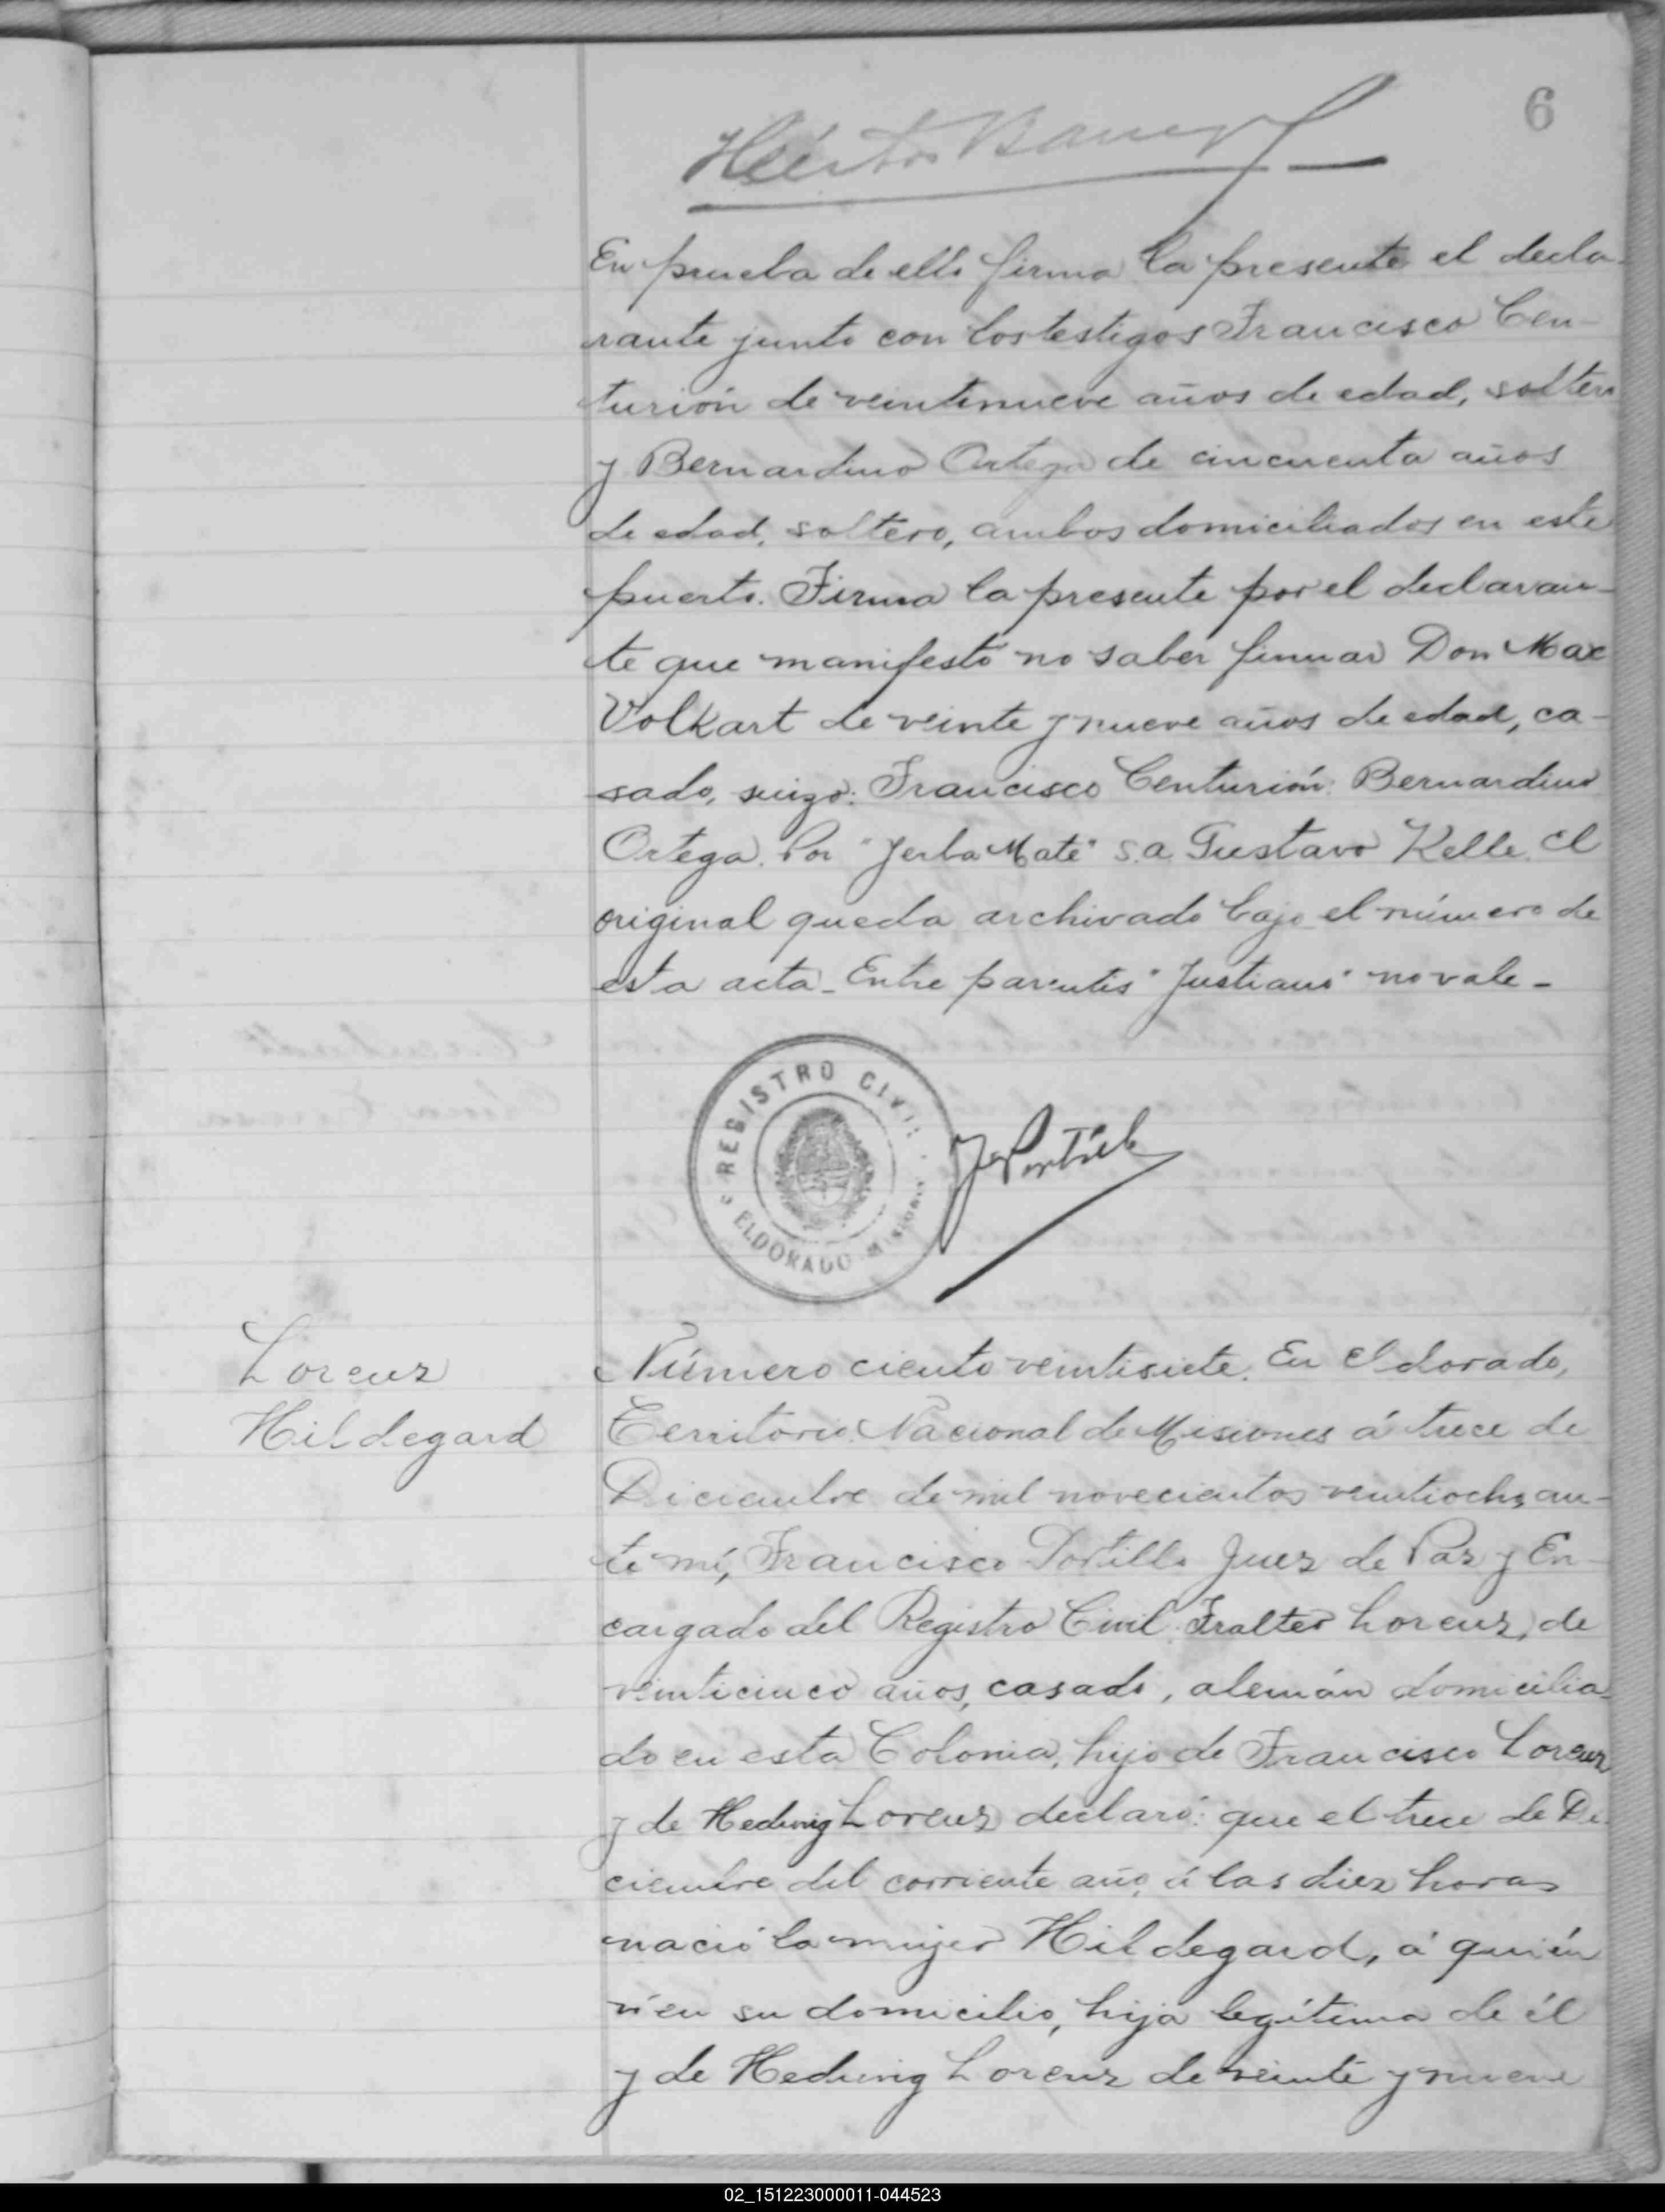 6
Héctor
En prueba de ello firma la presente el decla-
rante junto con los testigos Francisco Cen-
turión de veintinueve años de edad, soltero
y Bernardino Ortega de cincuenta años
de edad, soltero, ambos domiciliados en este
puerto. Firma la presente por el declaran-
te que manifestó no saber firmar Don Max
Volkart de veinte y nueve años de edad, ca-
sado, suizo: Francisco Centurión: Bernardino
Ortega. Por "Yerba Mate" S.a. Gustavo Kelle. El
original queda archivado bajo el número de
esta acta - Entre parentis "Justiano" no vale -
REGISTRO CIVIL
ELDORADO MISIONES
Lorenz
Hildegard
Número ciento veintisiete. En Eldorado,
Territorio Nacional de Misiones á trece de
Diciembre de mil novecientos veintiocho, an-
te mí, Francisco Portillo Juez de Paz y En-
cargado del Registro Civil Fralter Lorenz, de
veinticinco años, casado, alemán domicilia-
do en esta Colonia, hijo de Francisco Lorenz
y de Hedwig Lorenz declaró: que el trece de Di-
ciembre del corriente año, á las diez horas
nació la mujer Hildegard, á quién
ví en su domicilio, hija legítima de él
y de Hedwig Lorenz de veinte y nueve
02_151223000011-044523